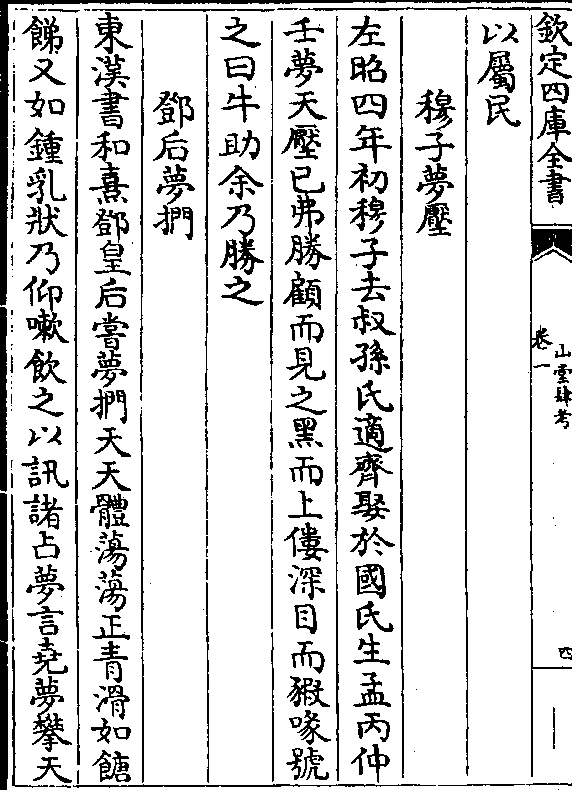 欽定四庫全書
山堂肆考
卷一
四
以屬民
穆子夢壓
左昭四年初穆子去叔孫氏適齊娶於國氏生孟丙仲
壬夢天壓已弗勝顧而見之黑而上僂深目而豭喙號
之曰牛助余乃勝之
鄧后夢捫
東漢書和熹鄧皇后嘗夢捫天天體蕩蕩正青滑如餹
餳又如鍾乳狀乃仰嗽飲之以訊諸占夢言堯夢攀天